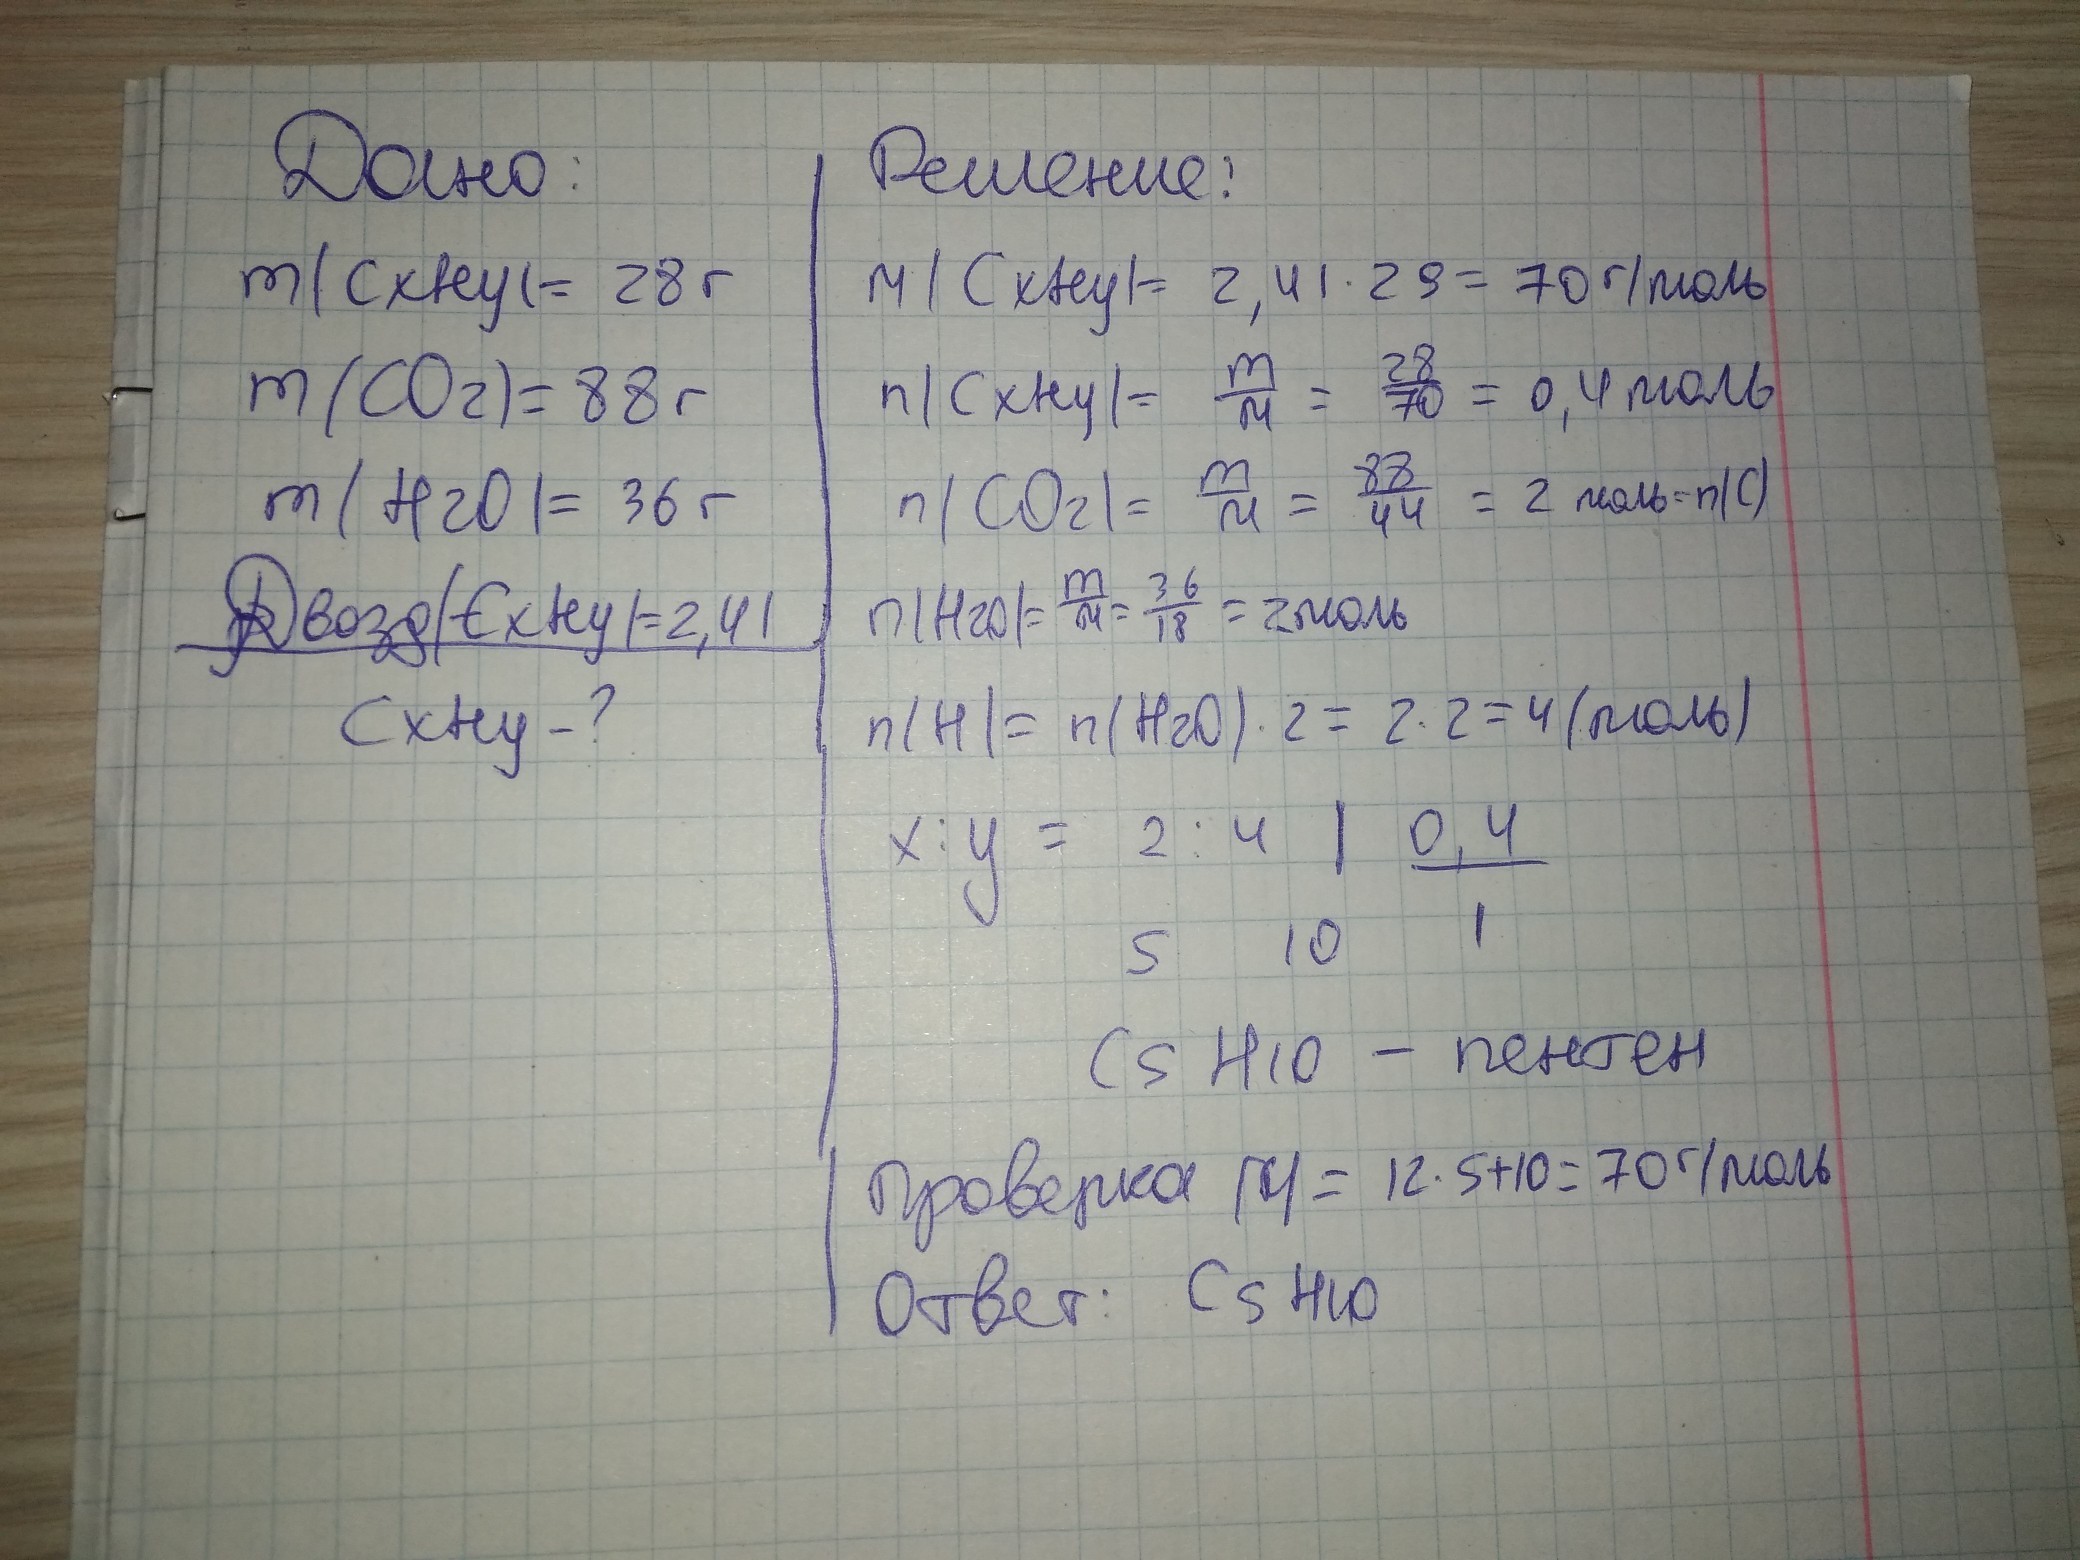 Дано:
m(CxHy)= 28 г
m(CO2)= 88 г
m(H2O)= 36 г
Dвозд(CxHy)=2,41
CxHy - ?
Решение:
M(CxHy)= 2,41 · 29 = 70 г/моль
n(CxHy)= m/M = 28/70 = 0,4 моль
n(CO2)= m/M = 88/44 = 2 моль=n(C)
n(H2O)= m/M = 36/18 = 2моль
n(H)= n(H2O) · 2 = 2 · 2 = 4 (моль)
x : y = 2 : 4 | 0,4
5 10 1
C5H10 - пентен
Проверка M = 12 · 5+10 = 70 г/моль
Ответ: C5H10